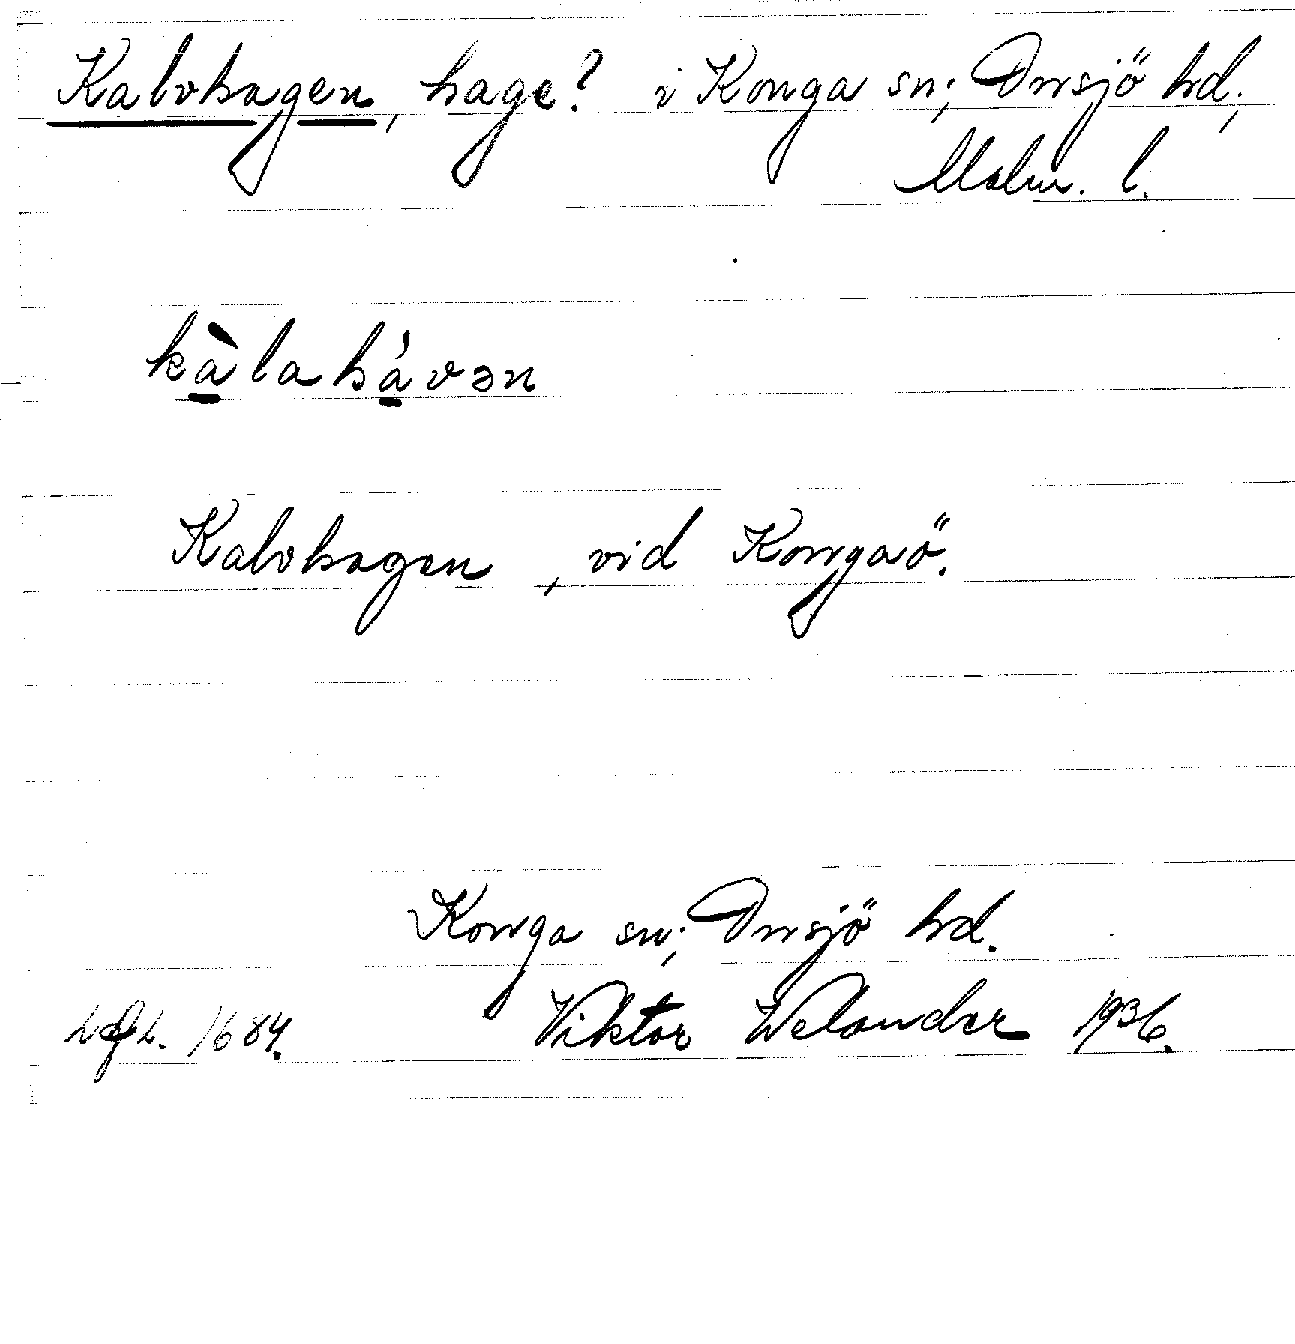 Kalvhagen, hage? i Konga sn; Onsjö hd;
Malm. l.
kàlahávən
Kalvhagen, vid Kongaö.
Konga sn; Onsjö hd.
1684. Viktor Welander 1936.